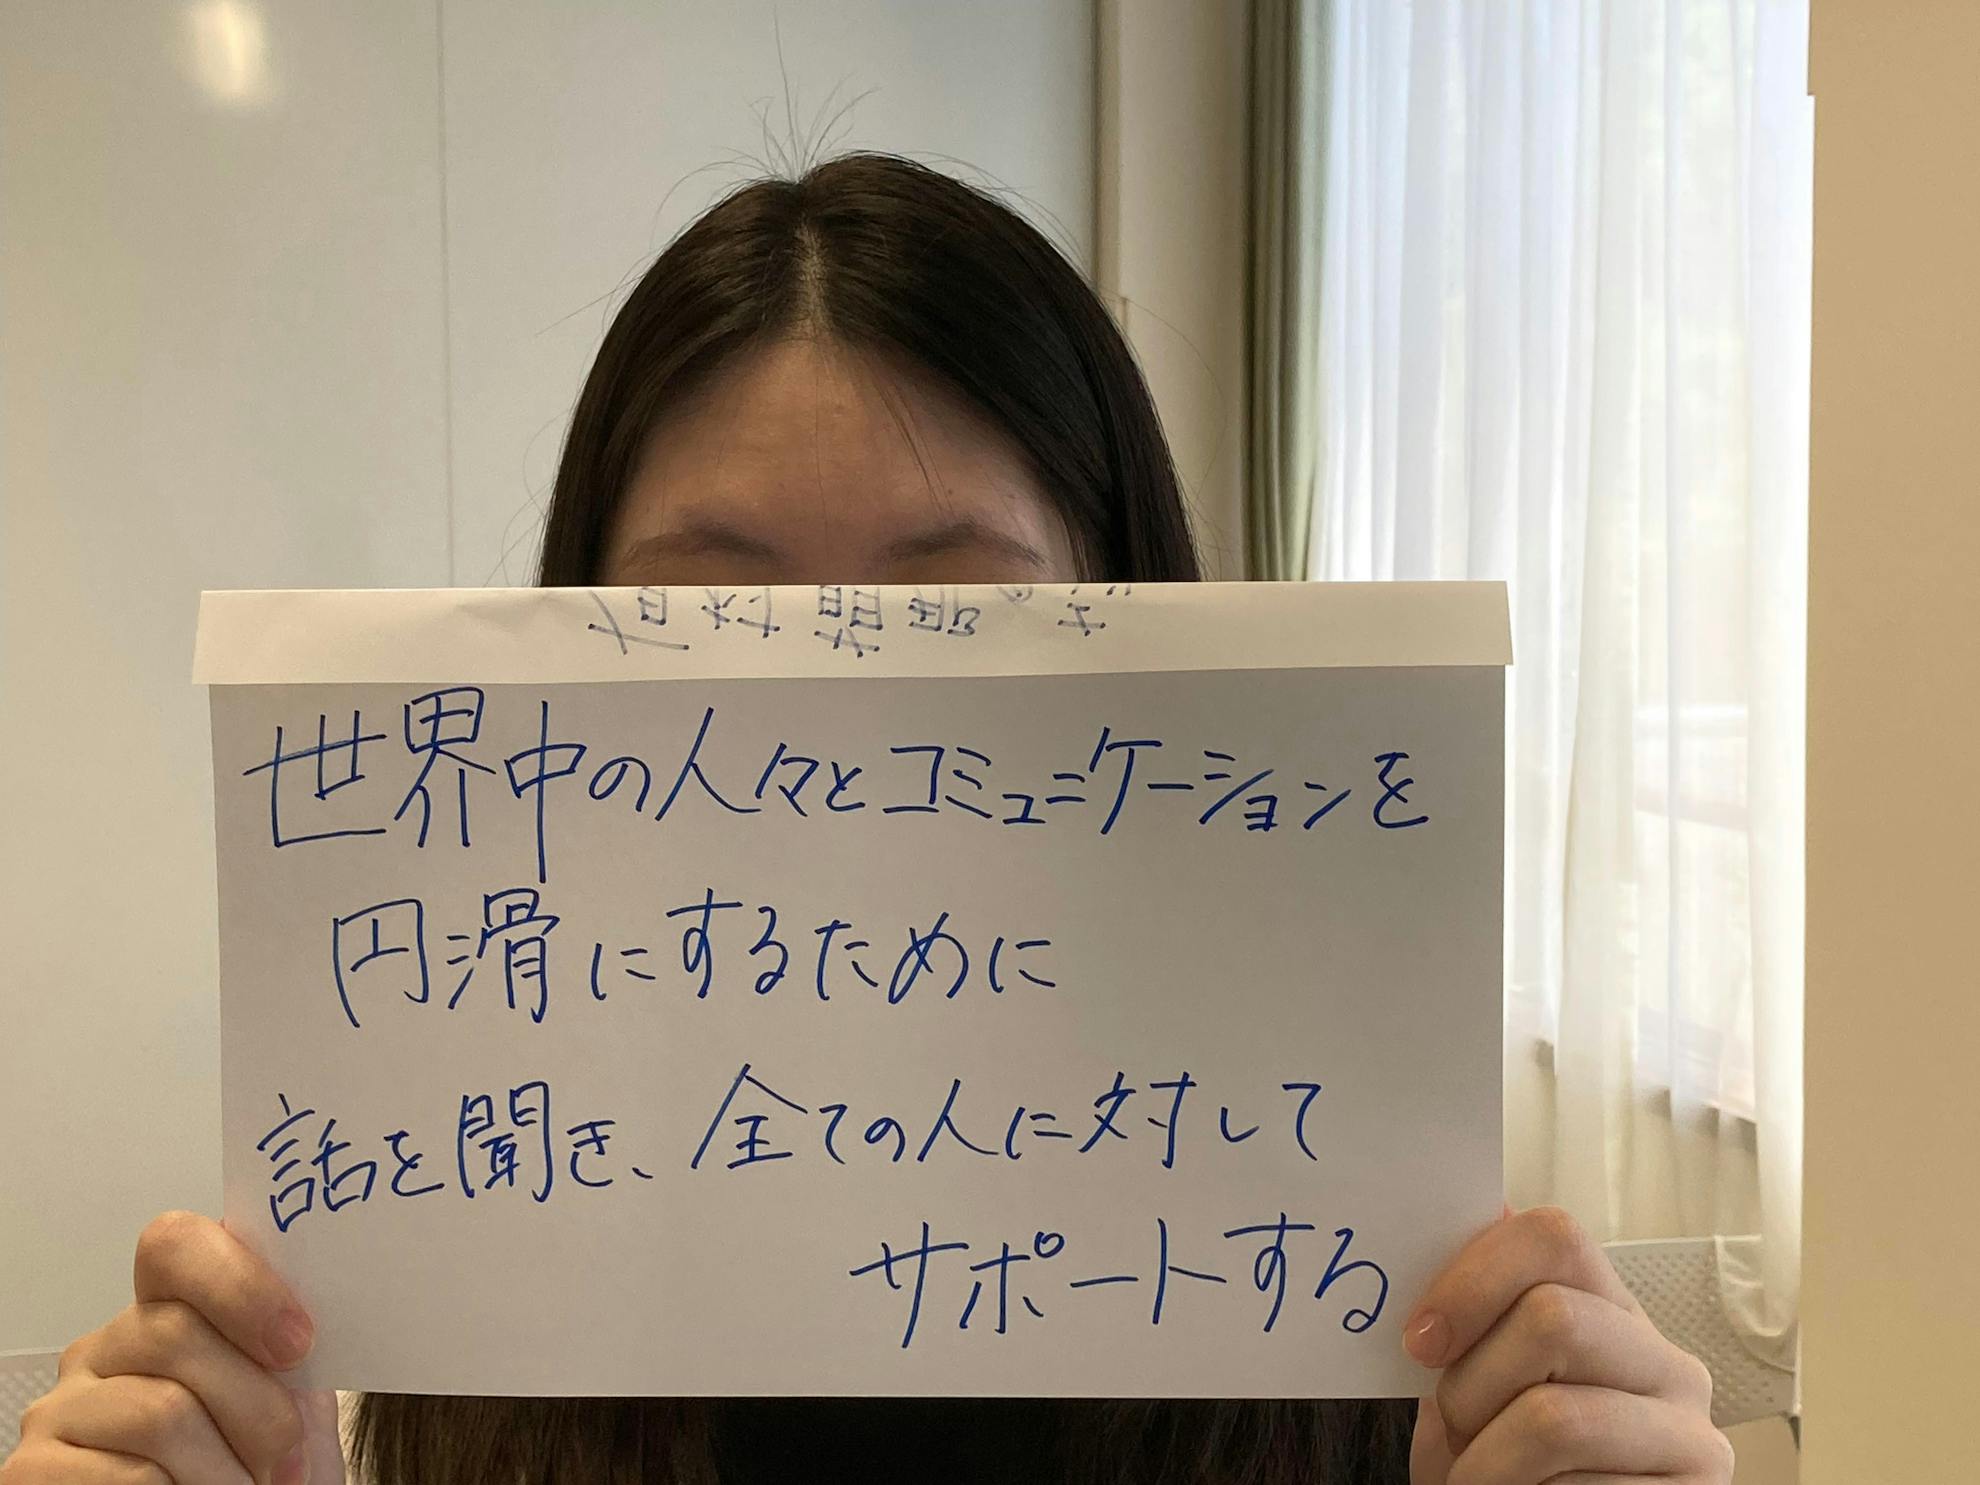 世界中の人々とコミュニケーションを
円滑にするために
話を聞き、全ての人に対して
サポートする